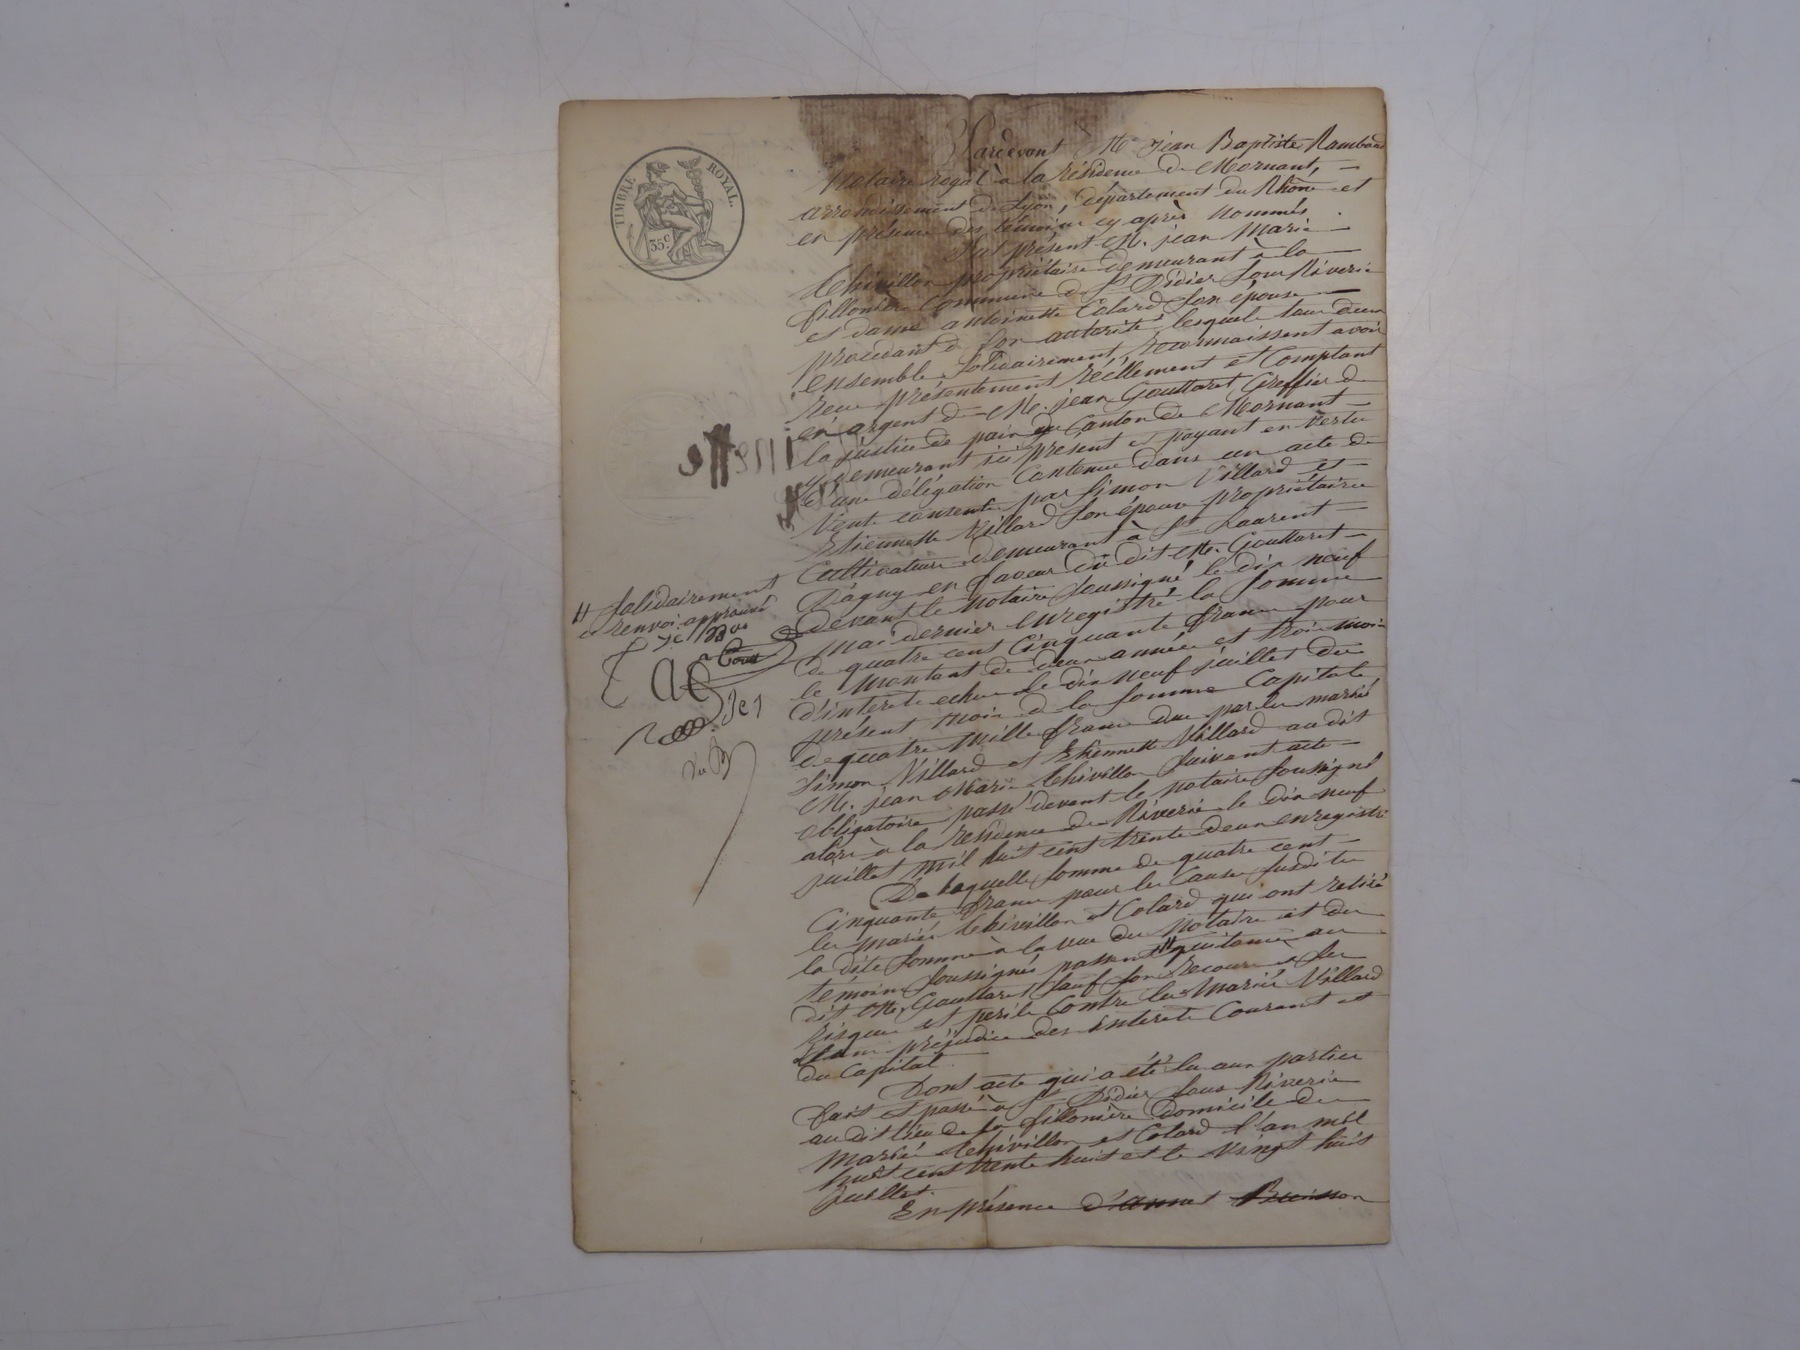 TIMBRE ROYAL.
35 c.
Pardevant Me jean Baptiste Rambaud
Notaire royal à la résidence de Mornant,
arrondissement de Lyon, département du Rhône et
en présence des témoins cy après nommés.
fut présent M. jean Marie
Chivillon propriétaire demeurant à la
fillonière Commune de St Didier sous Riverie
et dame antoinette Colard son épouse
procédant de son autorité, lesquels tous deux
ensemble solidairement, reconnaissent avoir
reçu présentement réellement et Comptant
en argent de M. jean Gouttaret Greffier de
la justice de paix du Canton de Mornant
y demeurant ici présent et payant en vertu
d'une délégation Contenue dans un acte de
Vente consentie par Simon Villard et
Etiennette Villard son épouse propriétaires
Cultivateurs demeurant à St Laurent
Dagny en faveur du dit M. Gouttaret
devant le notaire soussigné le dix neuf
mai dernier enregistré la Somme
de quatre cent Cinquante francs pour
le montant de deux années et trois mois
d'interets echus le dix neuf juillet du
présent mois de la somme Capitale
de quatre mille francs due par les mariés
Simon Villard et Etiennette Villard au dit
M. jean Marie Chivillon suivant acte
obligatoire passé devant le notaire soussigné
alors à la résidence de Riverie le dix neuf
juillet mil huit cent trente deux enregistré
De laquelle somme de quatre cent
Cinquante francs pour les Causes susdites
les mariés Chivillon et Colard qui ont retiré
la dite somme à la vue du notaire et des
témoins soussignés passent # quittance au
dit M. Gouttaret sauf son recours à ses
risques et perils Contre les mariés Villard
et sans préjudice des interets Courants et
du Capital.
Dont acte qui a été lu aux parties
fait et passé à St Didier sous Riverie
au dit lieu de la fillonière domicile des
mariés Chivillon et Colard l'an mil
huit cent trente huit et le Vingt huit
juillet.
En présence
# Solidairement
renvoi approuvé